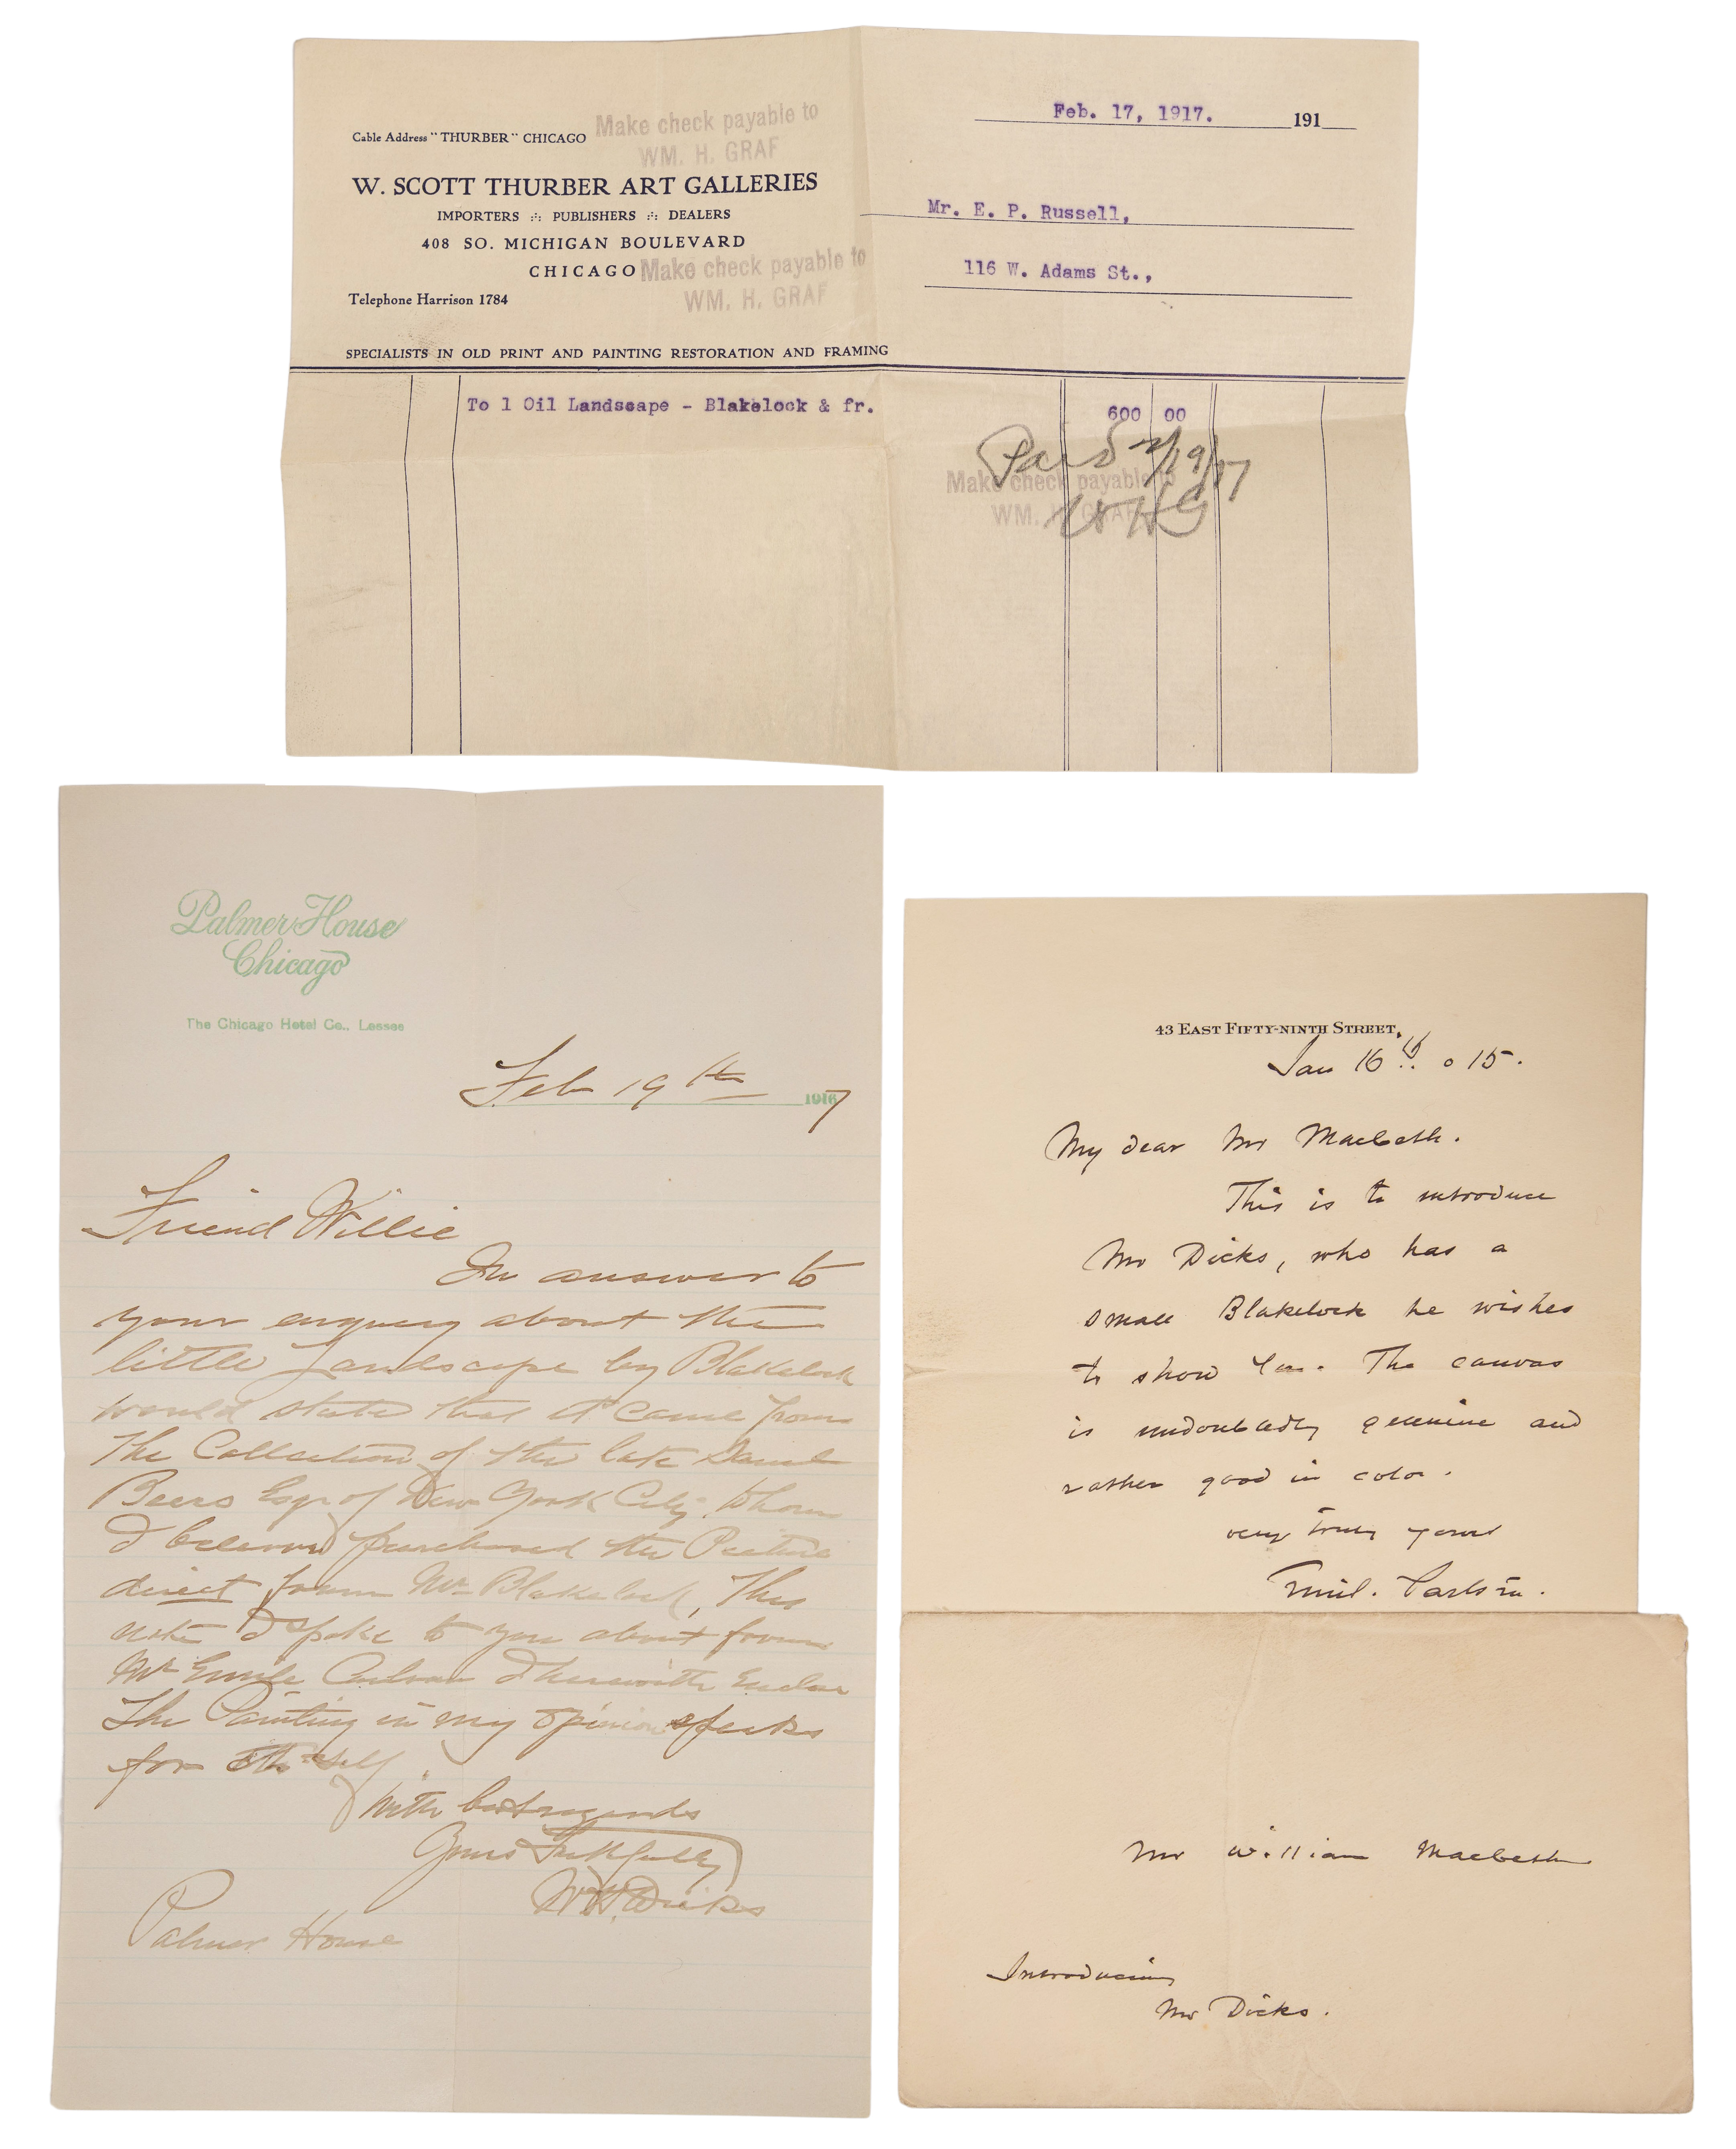 Cable Address "THURBER" CHICAGO
Make check payable to
WM. H. GRAF
W. SCOTT THURBER ART GALLERIES
IMPORTERS PUBLISHERS DEALERS
408 SO. MICHIGAN BOULEVARD
CHICAGO
Make check payable to
WM. H. GRAF
Telephone Harrison 1784
SPECIALISTS IN OLD PRINT AND PAINTING RESTORATION AND FRAMING
Feb. 17, 1917. 191
Mr. E. P. Russell,
116 W. Adams St.,
To 1 Oil Landscape - Blakelock & fr. 600 00
Paid 2/19/17
Make check payable to
WM. H. GRAF
WHG
Palmer House
Chicago
The Chicago Hotel Co., Lessee
Feb 19th 1917
Friend Willie
In answer to
your enquery about the
little Landscape by Blakelock
would state that it came from
The Collection of the late Daniel
Beers Esqr of New York City. Whom
I believe purchased the Picture
direct from Mr Blakelock, This
note I spoke to you about from
Mr Emile Carlsen I herewith Enclose
The Painting in my opinion speaks
for itself
With best regards
Yours Faithfully
W.H. Dicks
Palmer House
43 EAST FIFTY-NINTH STREET.
Jan 16th 015.
My dear Mr Macbeth.
This is to introduce
Mr Dicks, who has a
small Blakelock he wishes
to show you. The canvas
is undoubtedly genuine and
rather good in color.
very truly yours
Emil. Carlsen.
Mr William Macbeth
Introducing
Mr Dicks.